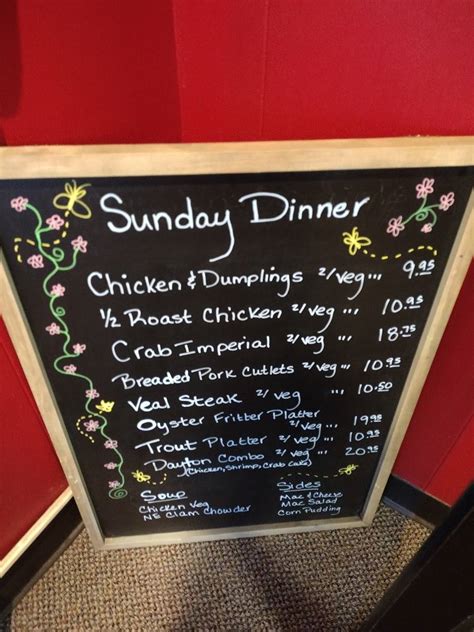 Sunday Dinner
Chicken & Dumplings 2/veg ''' 9.95
1/2 Roast Chicken 2/veg ''' 10.95
Crab Imperial 2/veg ''' 18.75
Breaded Pork Cutlets 2/veg ''' 10.95
Veal Steak 2/veg ''' 10.50
Oyster Fritter Platter 19.95
Trout Platter 2/veg ''' 10.95
Dayton Combo 2/veg ''' 20.95
(Chicken, Shrimp, Crab Cake)
Soup
Chicken Veg
NE Clam Chowder
Sides
Mac & Cheese
Mac Salad
Corn Pudding